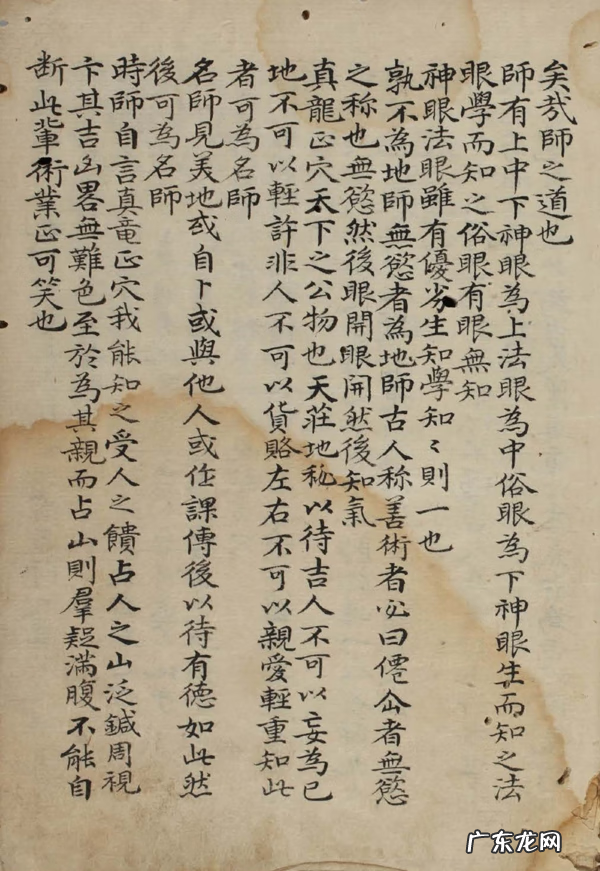 矣㢤師之道也
師有上中下神眼為上法眼為中俗眼為下神眼生而知之法
眼學而知之俗眼有眼無知
神眼法眼雖有優劣生知學知〻則一也
孰不為地師無慾者為地師古人称善術者必曰僊仚者無慾
之称也無慾然後眼開眼開然後知氣
真龍正穴天下之公物也天荘地秘以待吉人不可以妄為己
地不可以輕許非人不可以貨賂左右不可以親愛輕重知此
者可為名師
名師見美地或自卜或與他人或作課傳後以待有德如此然
後可為名師
時師自言真竜正穴我能知之受人之饋占人之山泛鍼周視
卞其吉凶畧無難色至於為其親而占山則羣疑滿腹不能自
断此輩術業正可笑也
广东龙网